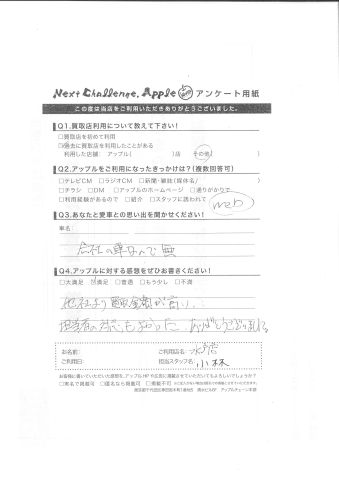 Next Challenge. Apple アンケート用紙
この度は当店をご利用いただきありがとうございました。
Q1.買取店利用について教えて下さい!
□買取店を初めて利用
□過去に買取店を利用したことがある
利用した店舗: アップル( )店 その他( )
Q2.アップルをご利用になったきっかけは?(複数回答可)
□テレビCM □ラジオCM □新聞・雑誌(媒体名/ )
□チラシ □DM □アップルのホームページ □通りがかりで
□利用経験があるので □紹介 □スタッフに誘われて web
Q3.あなたと愛車との思い出を聞かせください!
車名:
会社の車なんで無
Q4.アップルに対する感想をぜひお書きください!
□大満足 □満足 □普通 □もう少し □不満
他社より買取金額が高い、
担当者の対応もよかった ありがとうございました
お名前: ご利用店名:水戸店
ご利用日: 担当スタッフ名:小林
お客様に書いていただいた感想を、アップルHPや広告に掲載させていただいてもよろしいでしょうか?
□実名で掲載可 □匿名なら掲載可 □掲載不可